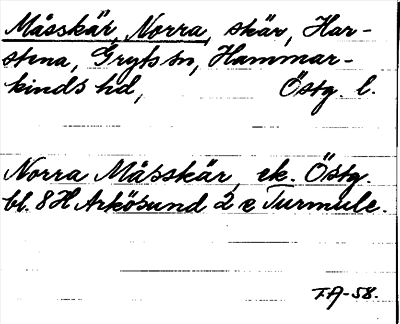 Måsskär, Norra, skär, Har-
stena, Gryts sn, Hammar-
kinds hd, Östg. l.
Norra Måsskär, ek. Östg.
bl. 8H Arkösund 2 e Turmule.
T.A-58.